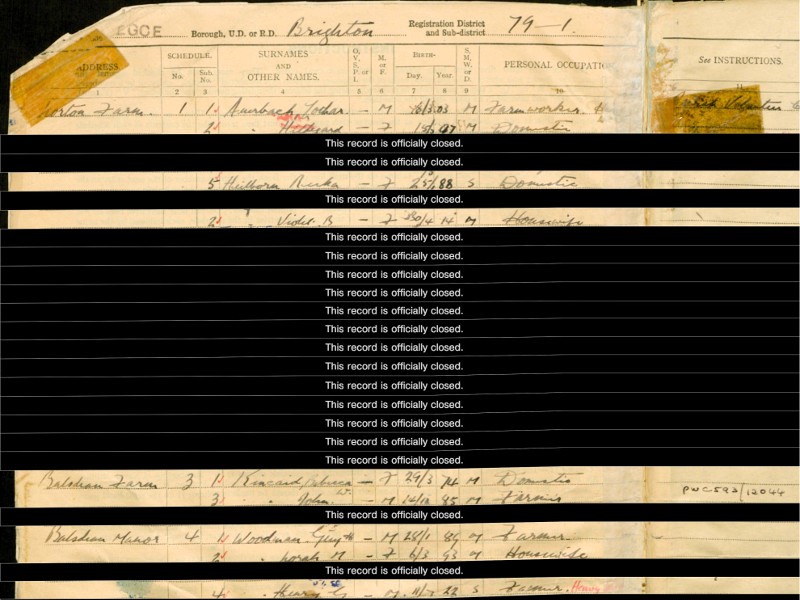 EGCE Borough, U.D. or R.D. Brighton Registration District and Sub-district 79-1.
ADDRESS. SCHEDULE. SURNAMES AND OTHER NAMES. O, V, S, P, or I. M. or F. BIRTH- S, M, W, or D. PERSONAL OCCUPATIO See INSTRUCTIONS.
No. Sub. No. Day. Year.
1 2 3 4 5 6 7 8 9 10 11
Farm. 1 1 Auerbach Lothar - M /3 03 M Farmworker
2 " - F 07 M Domestic
This record is officially closed.
This record is officially closed.
5 Heilborn - F 88 S Domestic
This record is officially closed.
2 " Violet B - F 30/4 14 M Housewife
This record is officially closed.
This record is officially closed.
This record is officially closed.
This record is officially closed.
This record is officially closed.
This record is officially closed.
This record is officially closed.
This record is officially closed.
This record is officially closed.
This record is officially closed.
This record is officially closed.
This record is officially closed.
This record is officially closed.
Balsdean Farm 3 1 Kincaid Rebecca - F 29/3 74 M Domestic
3 " John - M 85 M Farmer PWC593/12044
This record is officially closed.
Balsdean Manor 4 1 Woodman Guy H - M 28/1 86 M Farmer
2 " Norah M - F 6/3 93 M Housewife
This record is officially closed.
4 " Henry G - M 22 S Farmer